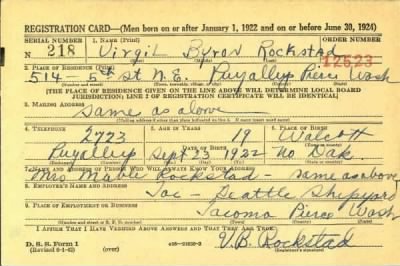 REGISTRATION CARD—(Men born on or after January 1, 1922 and on or before June 30, 1924)
SERIAL NUMBER 1. NAME (Print) ORDER NUMBER
N 218 Virgil Byron Rockstad 12623
2. PLACE OF RESIDENCE (Print)
514 - 5th St N.E. Puyallup Pierce Wash
[THE PLACE OF RESIDENCE GIVEN ON THE LINE ABOVE WILL DETERMINE LOCAL BOARD
JURISDICTION; LINE 2 OF REGISTRATION CERTIFICATE WILL BE IDENTICAL]
3. MAILING ADDRESS
Same as above
4. TELEPHONE 5. AGE IN YEARS 6. PLACE OF BIRTH
2723 19 Walcott
DATE OF BIRTH
Puyallup Sept 23 1922 No Dak.
7. NAME AND ADDRESS OF PERSON WHO WILL ALWAYS KNOW YOUR ADDRESS
Mrs Mable Rockstad - Same as above
8. EMPLOYER'S NAME AND ADDRESS
Tac - Seattle Shipyard
9. PLACE OF EMPLOYMENT OR BUSINESS
Tacoma Pierce Wash
I AFFIRM THAT I HAVE VERIFIED ABOVE ANSWERS AND THAT THEY ARE TRUE.
D. S. S. Form 1
(Revised 6-9-41) (over)
V.B. Rockstad